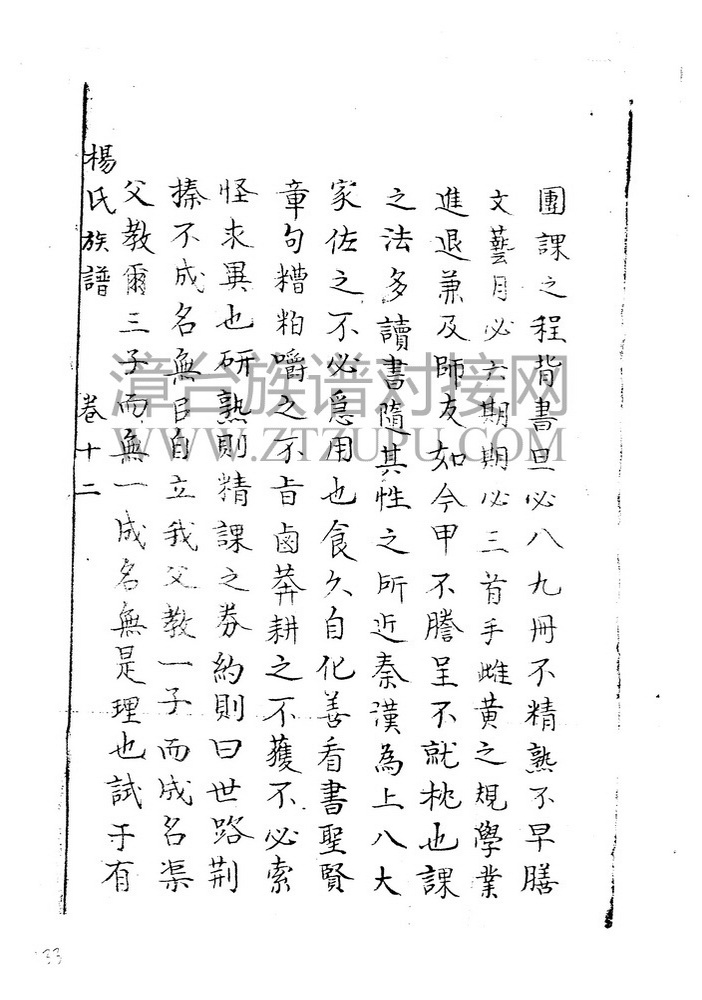 團課之程背書旦必八九冊不精熟不早膳
文藝月必六期期必三首手雌黃之規學業
進退兼及師友如今甲不謄呈不就枕也課
之法多讀書隨其性之所近秦漢為上八大
家佐之不必為用也食久自化善看書聖賢
章句糟粕嚼之不旨鹵莽耕之不獲不必索
怪求異也研熟則精課之券約則曰世路荆
榛不成名無自立我父教一子而成名渠
父教爾三子而無一成名無是理也試于有
楊氏族譜 卷十二
漳台族谱对接网
WWW.ZTZUPU.COM
33